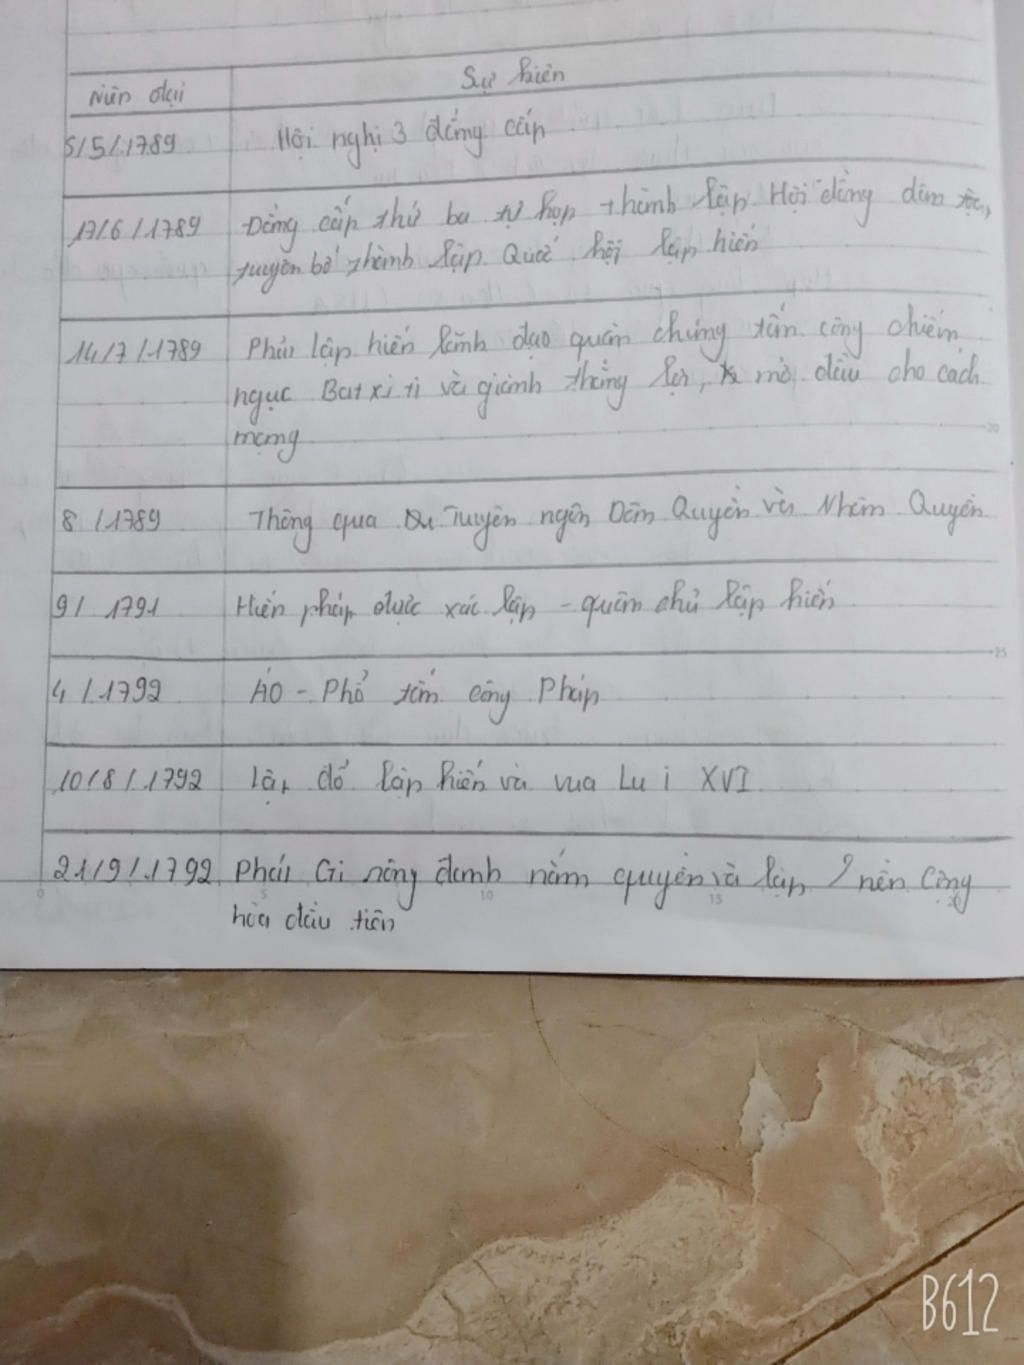 Niên đại Sự kiện
5/5/1789 Hội nghị 3 đẳng cấp
17/6/1789 Đẳng cấp thứ ba tự họp thành lập Hội đồng dân tộc,
tuyên bố thành lập Quốc hội lập hiến
14/7/1789 Phái lập hiến lãnh đạo quần chúng tấn công chiếm
ngục Baxti và giành thắng lợi, mở đầu cho cách
mạng
8/1789 Thông qua Tuyên ngôn Dân Quyền và Nhân Quyền
9/1791 Hiến pháp được xác lập - quân chủ lập hiến
4/1792 ÁO - Phổ tấn công Pháp
10/8/1792 Lật đổ lập hiến và vua Lu i XVI
21/9/1792 Phái Gi rông đanh nắm quyền và lập nền Cộng
hòa đầu tiên
0 5 10 15 20
20
25
B612